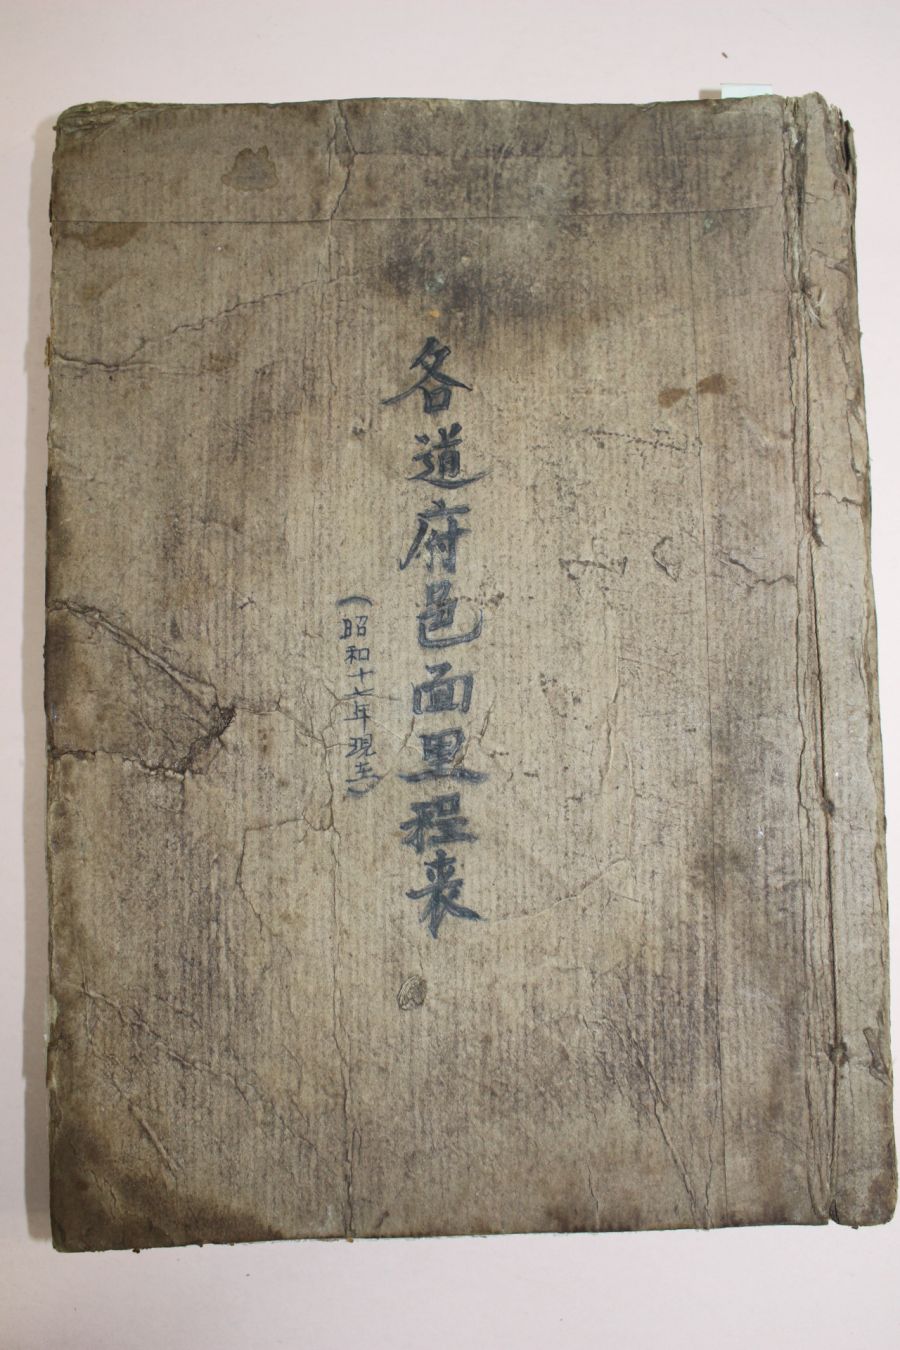 各道府邑面里程表
(昭和十七年現在)